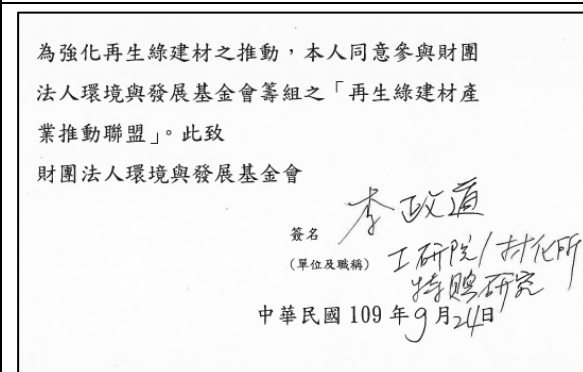 為強化再生綠建材之推動，本人同意參與財團
法人環境與發展基金會籌組之「再生綠建材產
業推動聯盟」。此致
財團法人環境與發展基金會
簽名 李政道
(單位及職稱) 工研院/材化所
特聘研究
中華民國 109 年 9 月 24 日